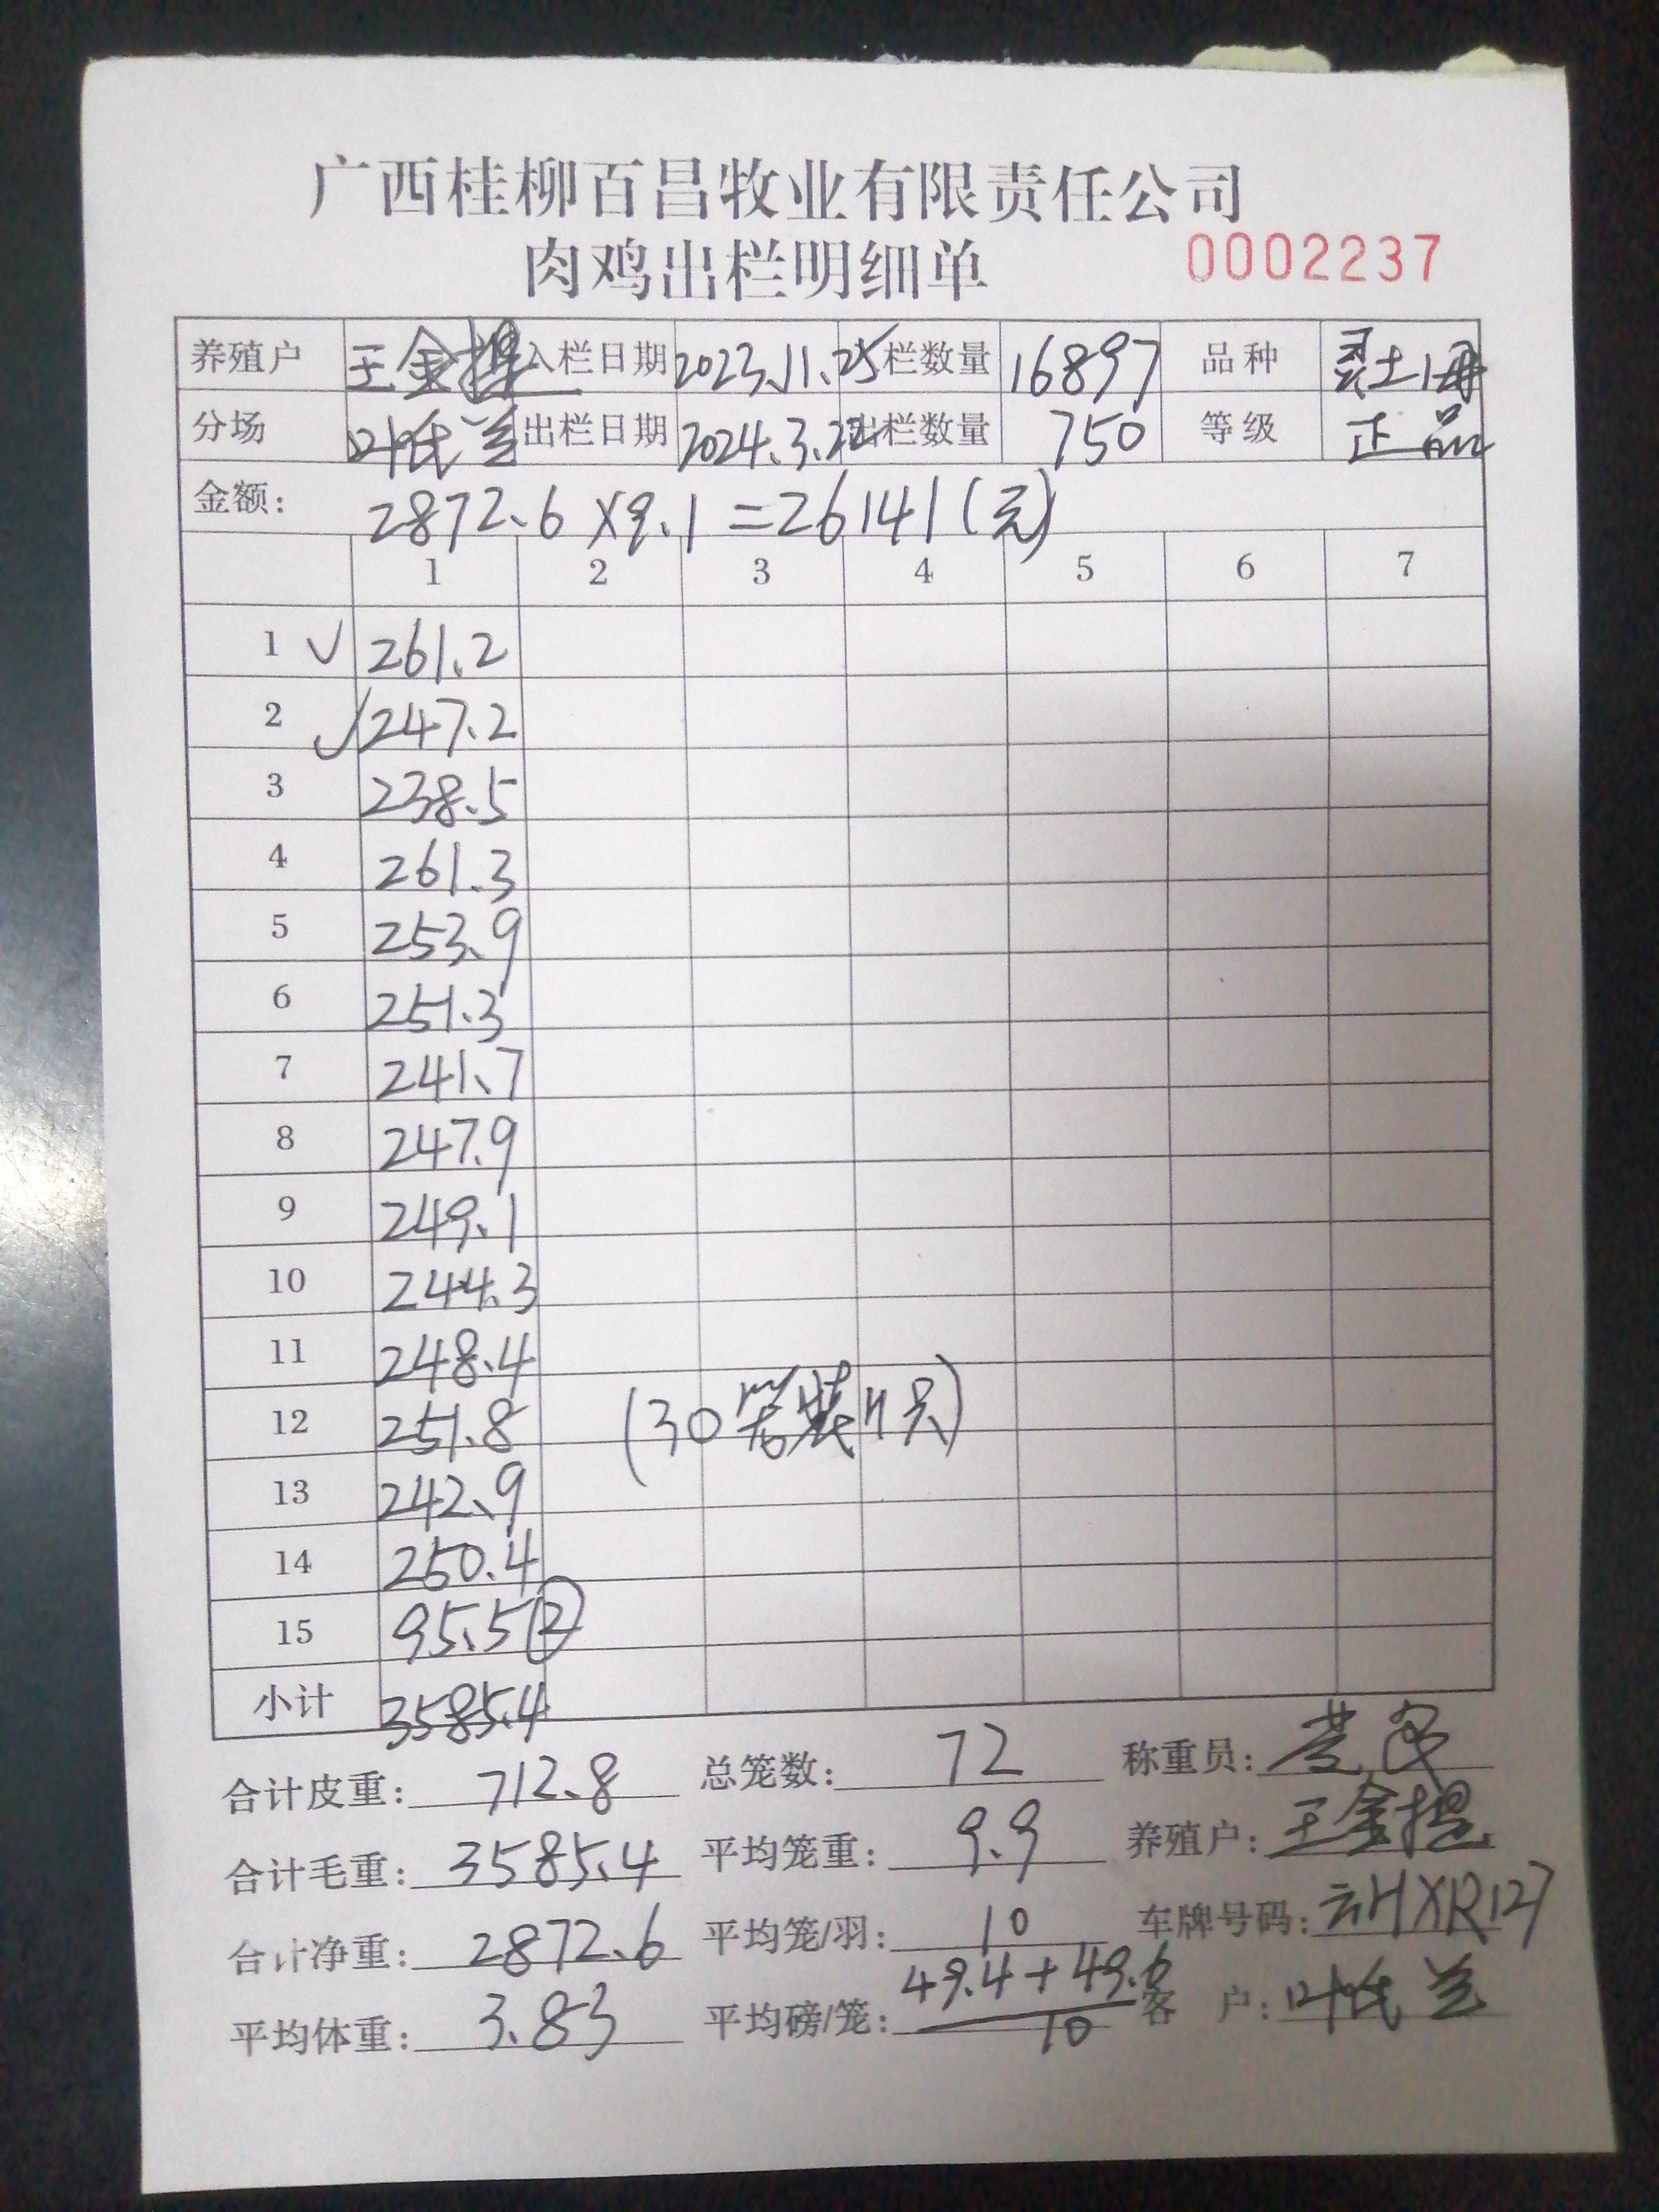 广西桂柳百昌牧业有限责任公司
肉鸡出栏明细单 0002237
养殖户 王金提 入栏日期 2023.11.25 栏数量 16897 品种 土母
分场 出栏日期 2024.3.22 出栏数量 750 等级 正品
金额: 2872.6×9.1=26141(元)
1 2 3 4 5 6 7
1 ✓ 261.2
2 ✓ 247.2
3 238.5
4 261.3
5 253.9
6 251.3
7 241.7
8 247.9
9 249.1
10 244.3
11 248.4
12 251.8 (30笼装11只)
13 242.9
14 250.4
15 95.5 ②
小计 3585.4
合计皮重: 712.8 总笼数: 72 称重员:
合计毛重: 3585.4 平均笼重: 9.9 养殖户: 王金提
合计净重: 2872.6 平均笼/羽: 10 车牌号码: 云HXR127
平均体重: 3.83 平均磅/笼: 49.4+49.6 客户:
10